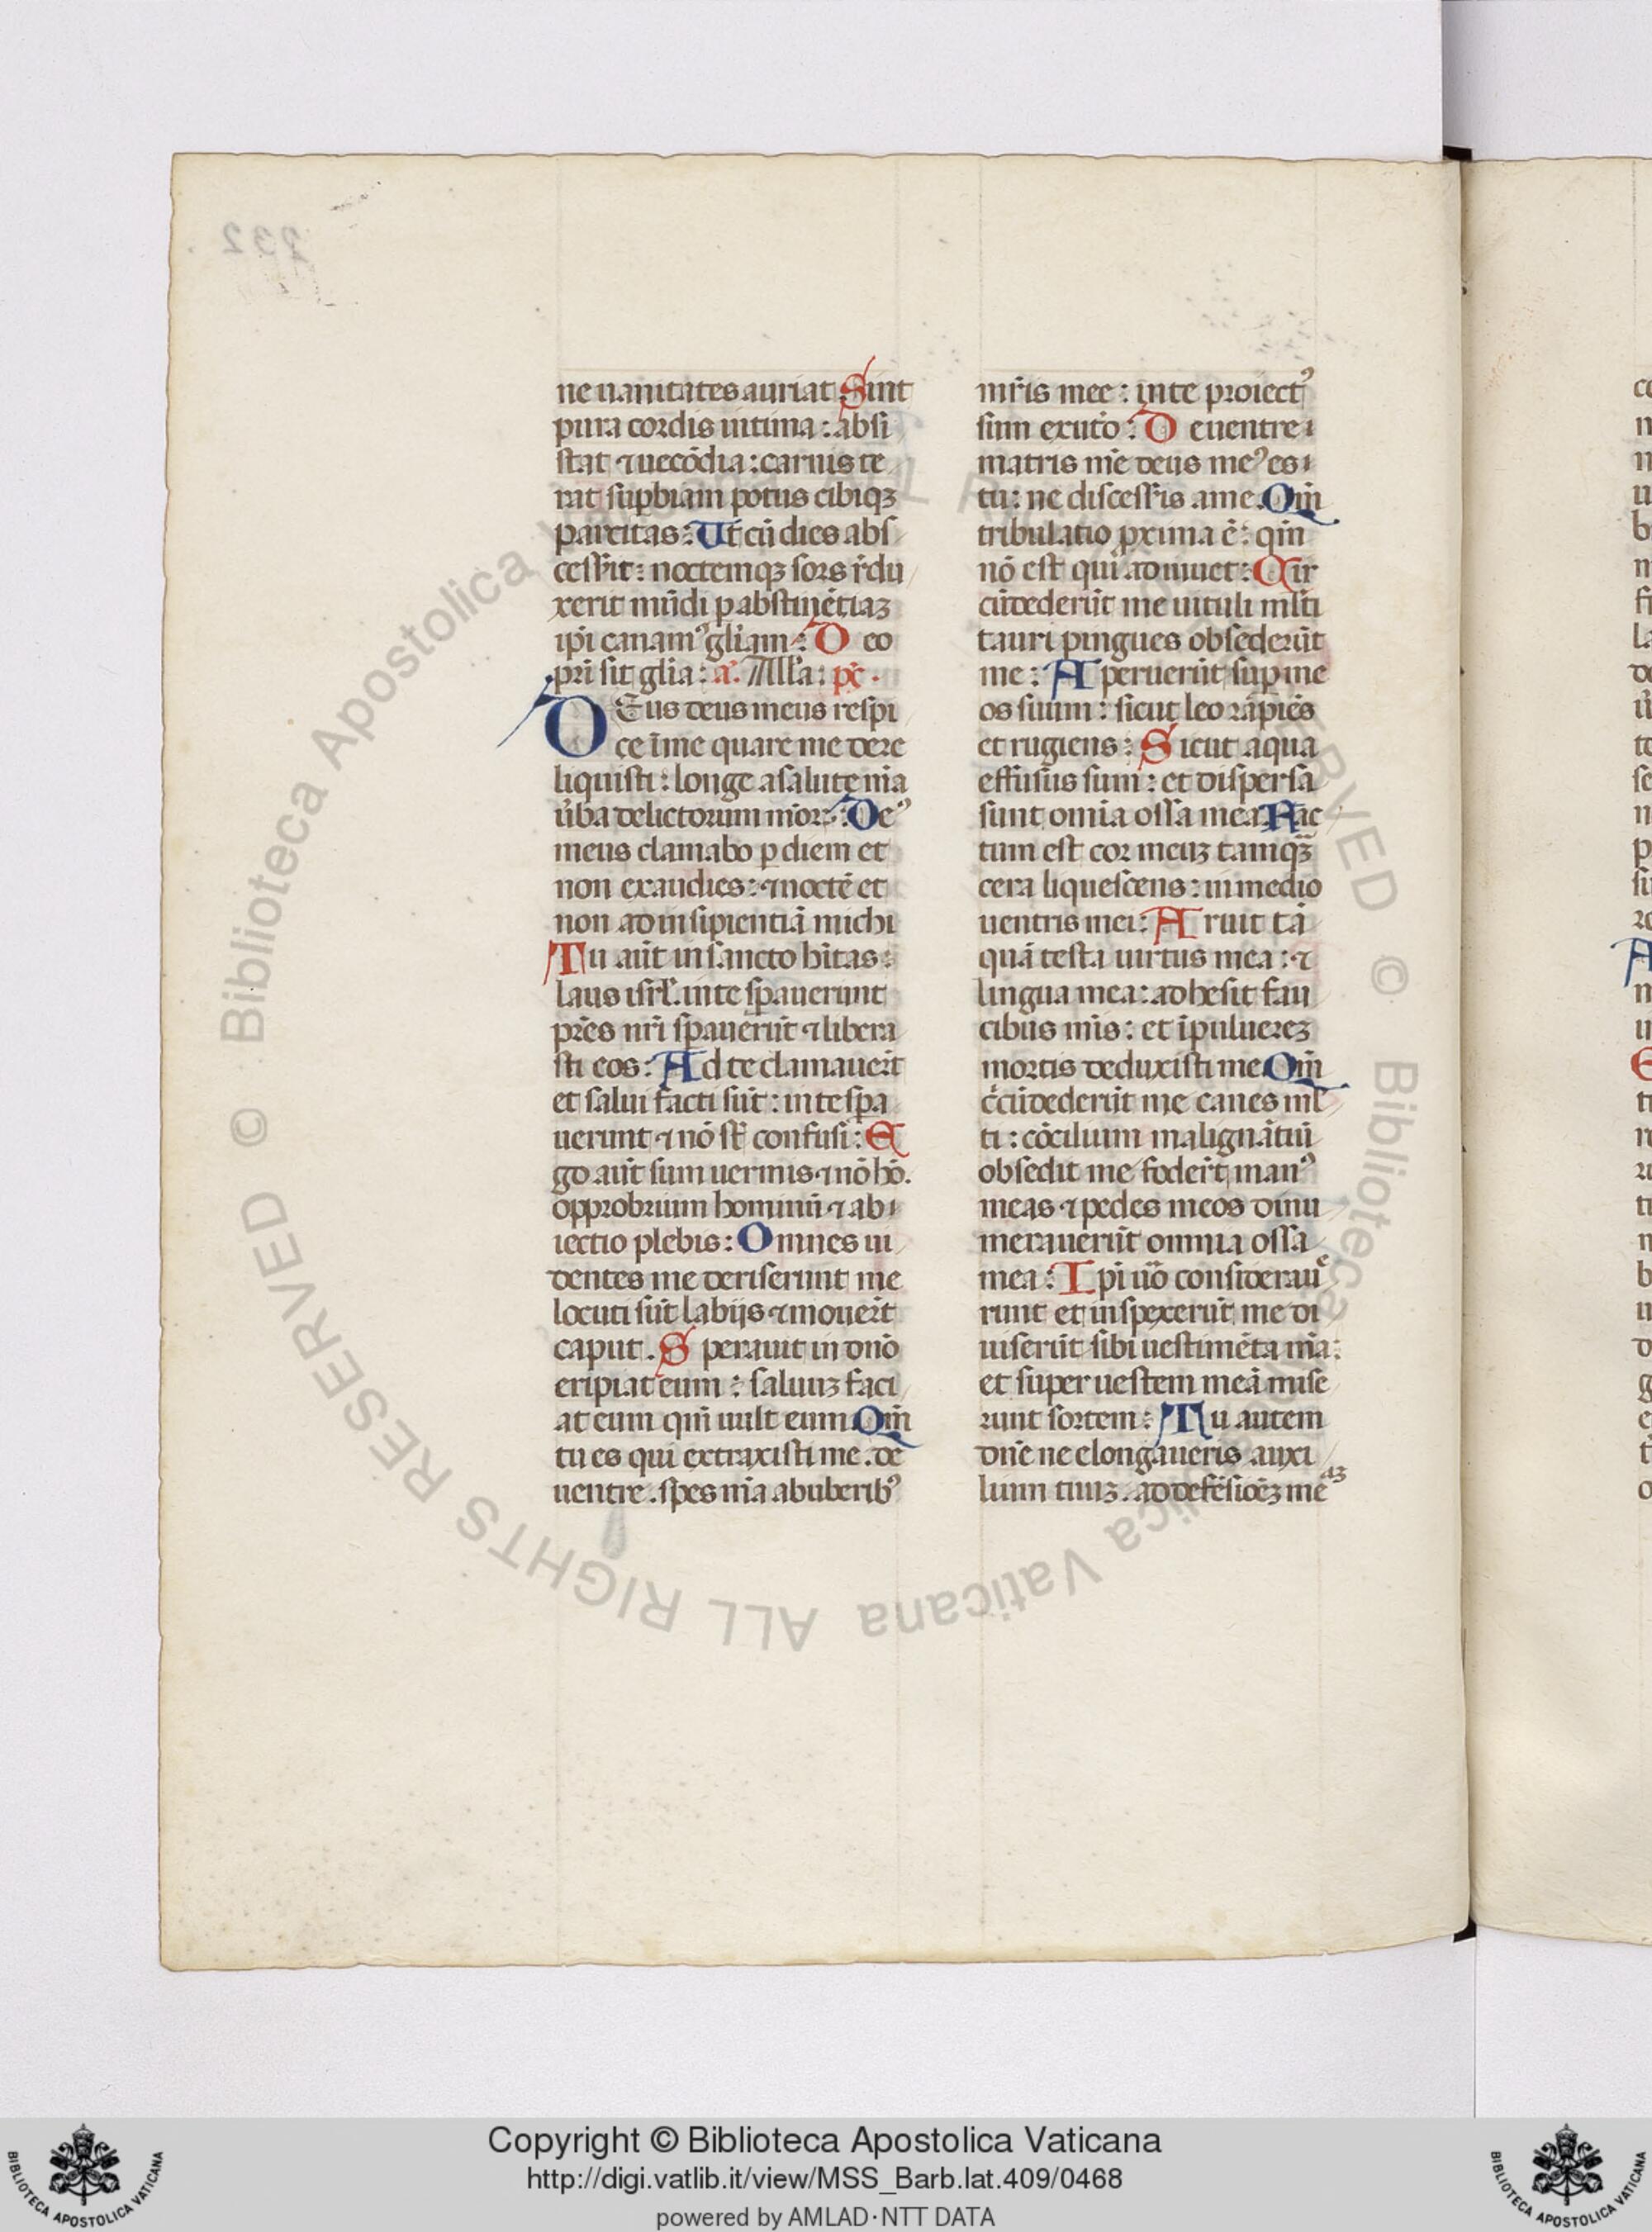 ne uanitates auriat Sint
pura cordis intima : absi
stat ⁊ uecōdia : carnis te
rat supbiam potus cibiqꝫ
parcitas : Ut cū dies abs
cess'it : noctemqꝫ sors r̄du
xerit mūdi p abstinētiaꝫ
ip̄i canamꝰ gliam : D eo
pr̄i sit glīa : a. Alla : ps̄.
DEus deus meus respi
ce ī me quare me dere
liquisti : longe a salute m̄a
ūba delictorum mōꝝ : Deꝰ
meus clamabo p diem et
non exaudies : ⁊ nocte et
non ad insipientiā michi
Tu aūt in sancto hītas :
laus isrl̄. in te spauerunt
prēs nr̄i spauerūt ⁊ libera
sti eos : Ad te clamauer̄t
et salui facti sūt : in te spa
uerunt ⁊ nō st̄ confusi : E
go aūt sum uermis ⁊ nō hō.
opprobrium hominū ⁊ ab
iectio plebis : Omnes ui
dentes me deriserunt me
locuti sūt labijs ⁊ mouer̄t
caput . S perauit in dn̄o
eripiat eum : saluuꝫ faci
at eum qm̄ uult eum Qm̄
tu es qui extraxisti me . de
uentre . spes m̄a ab uberibꝰ
mr̄is mee : in te proiectꝰ
sum ex utō : D e uentre
matris m̄e deus meꝰ es
tu : ne discess'is a me . Qm̄
tribulatio pxima ē : qm̄
nō est qui adiuuet : Cir
cūdederūt me uituli ml̄ti
tauri pingues obsederūt
me : A peruerūt sup me
os suum : sicut leo rapiēs
et rugiens : S icut aqua
effusus sum : et dispersa
sunt omīa ossa mea Fac
tum est cor meuꝫ tamqꝫ
cera liquescens : in medio
uentris mei : A ruit tā
quā testa uirtus mea : ⁊
lingua mea : adhesit fau
cibus mīs : et ī puluereꝫ
mortis deduxisti me Qm̄
c̄cūdederūt me canes ml̄
ti : cōcilium malignātiū
obsedit me foder̄t manꝰ
meas ⁊ pedes meos dinu
merauerūt omnia ossa
mea : I pi ūo considerauē
runt et inspexerūt me di
uiserūt sibi uestimēta m̄a :
et super uestem meā mise
runt sortem : T u autem
dn̄e ne elongaueris auxi
lium tuuꝫ . ad defēsiōeꝫ meaꝫ
Copyright © Biblioteca Apostolica Vaticana
http://digi.vatlib.it/view/MSS_Barb.lat.409/0468
powered by AMLAD·NTT DATA
BIBLIOTECA APOSTOLICA VATICANA
BIBLIOTECA APOSTOLICA VATICANA
© Biblioteca Apostolica Vaticana ALL RIGHTS RESERVED
© Biblioteca Apostolica Vaticana ALL RIGHTS RESERVED